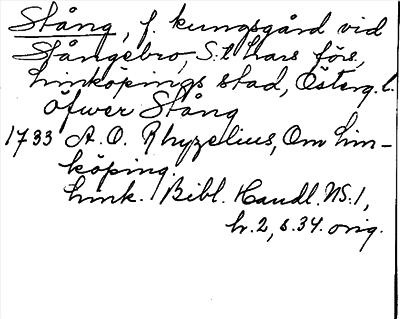 Stång, f. kungsgård vid
Stångebro, S:t Lars förs.,
Linköpings stad, Österg.l.
Öfwer Stång
1733 A. O. Rhyzelius, Om Lin-
köping.
Link. Bibl. Handl. NS. 1,
h. 2, s. 34. orig.